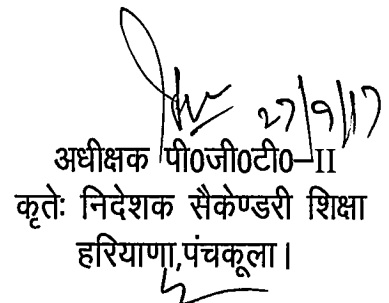 27/9/17
अधीक्षक पी0जी0टी0-II
कृतेः निदेशक सैकेण्डरी शिक्षा
हरियाणा,पंचकूला।